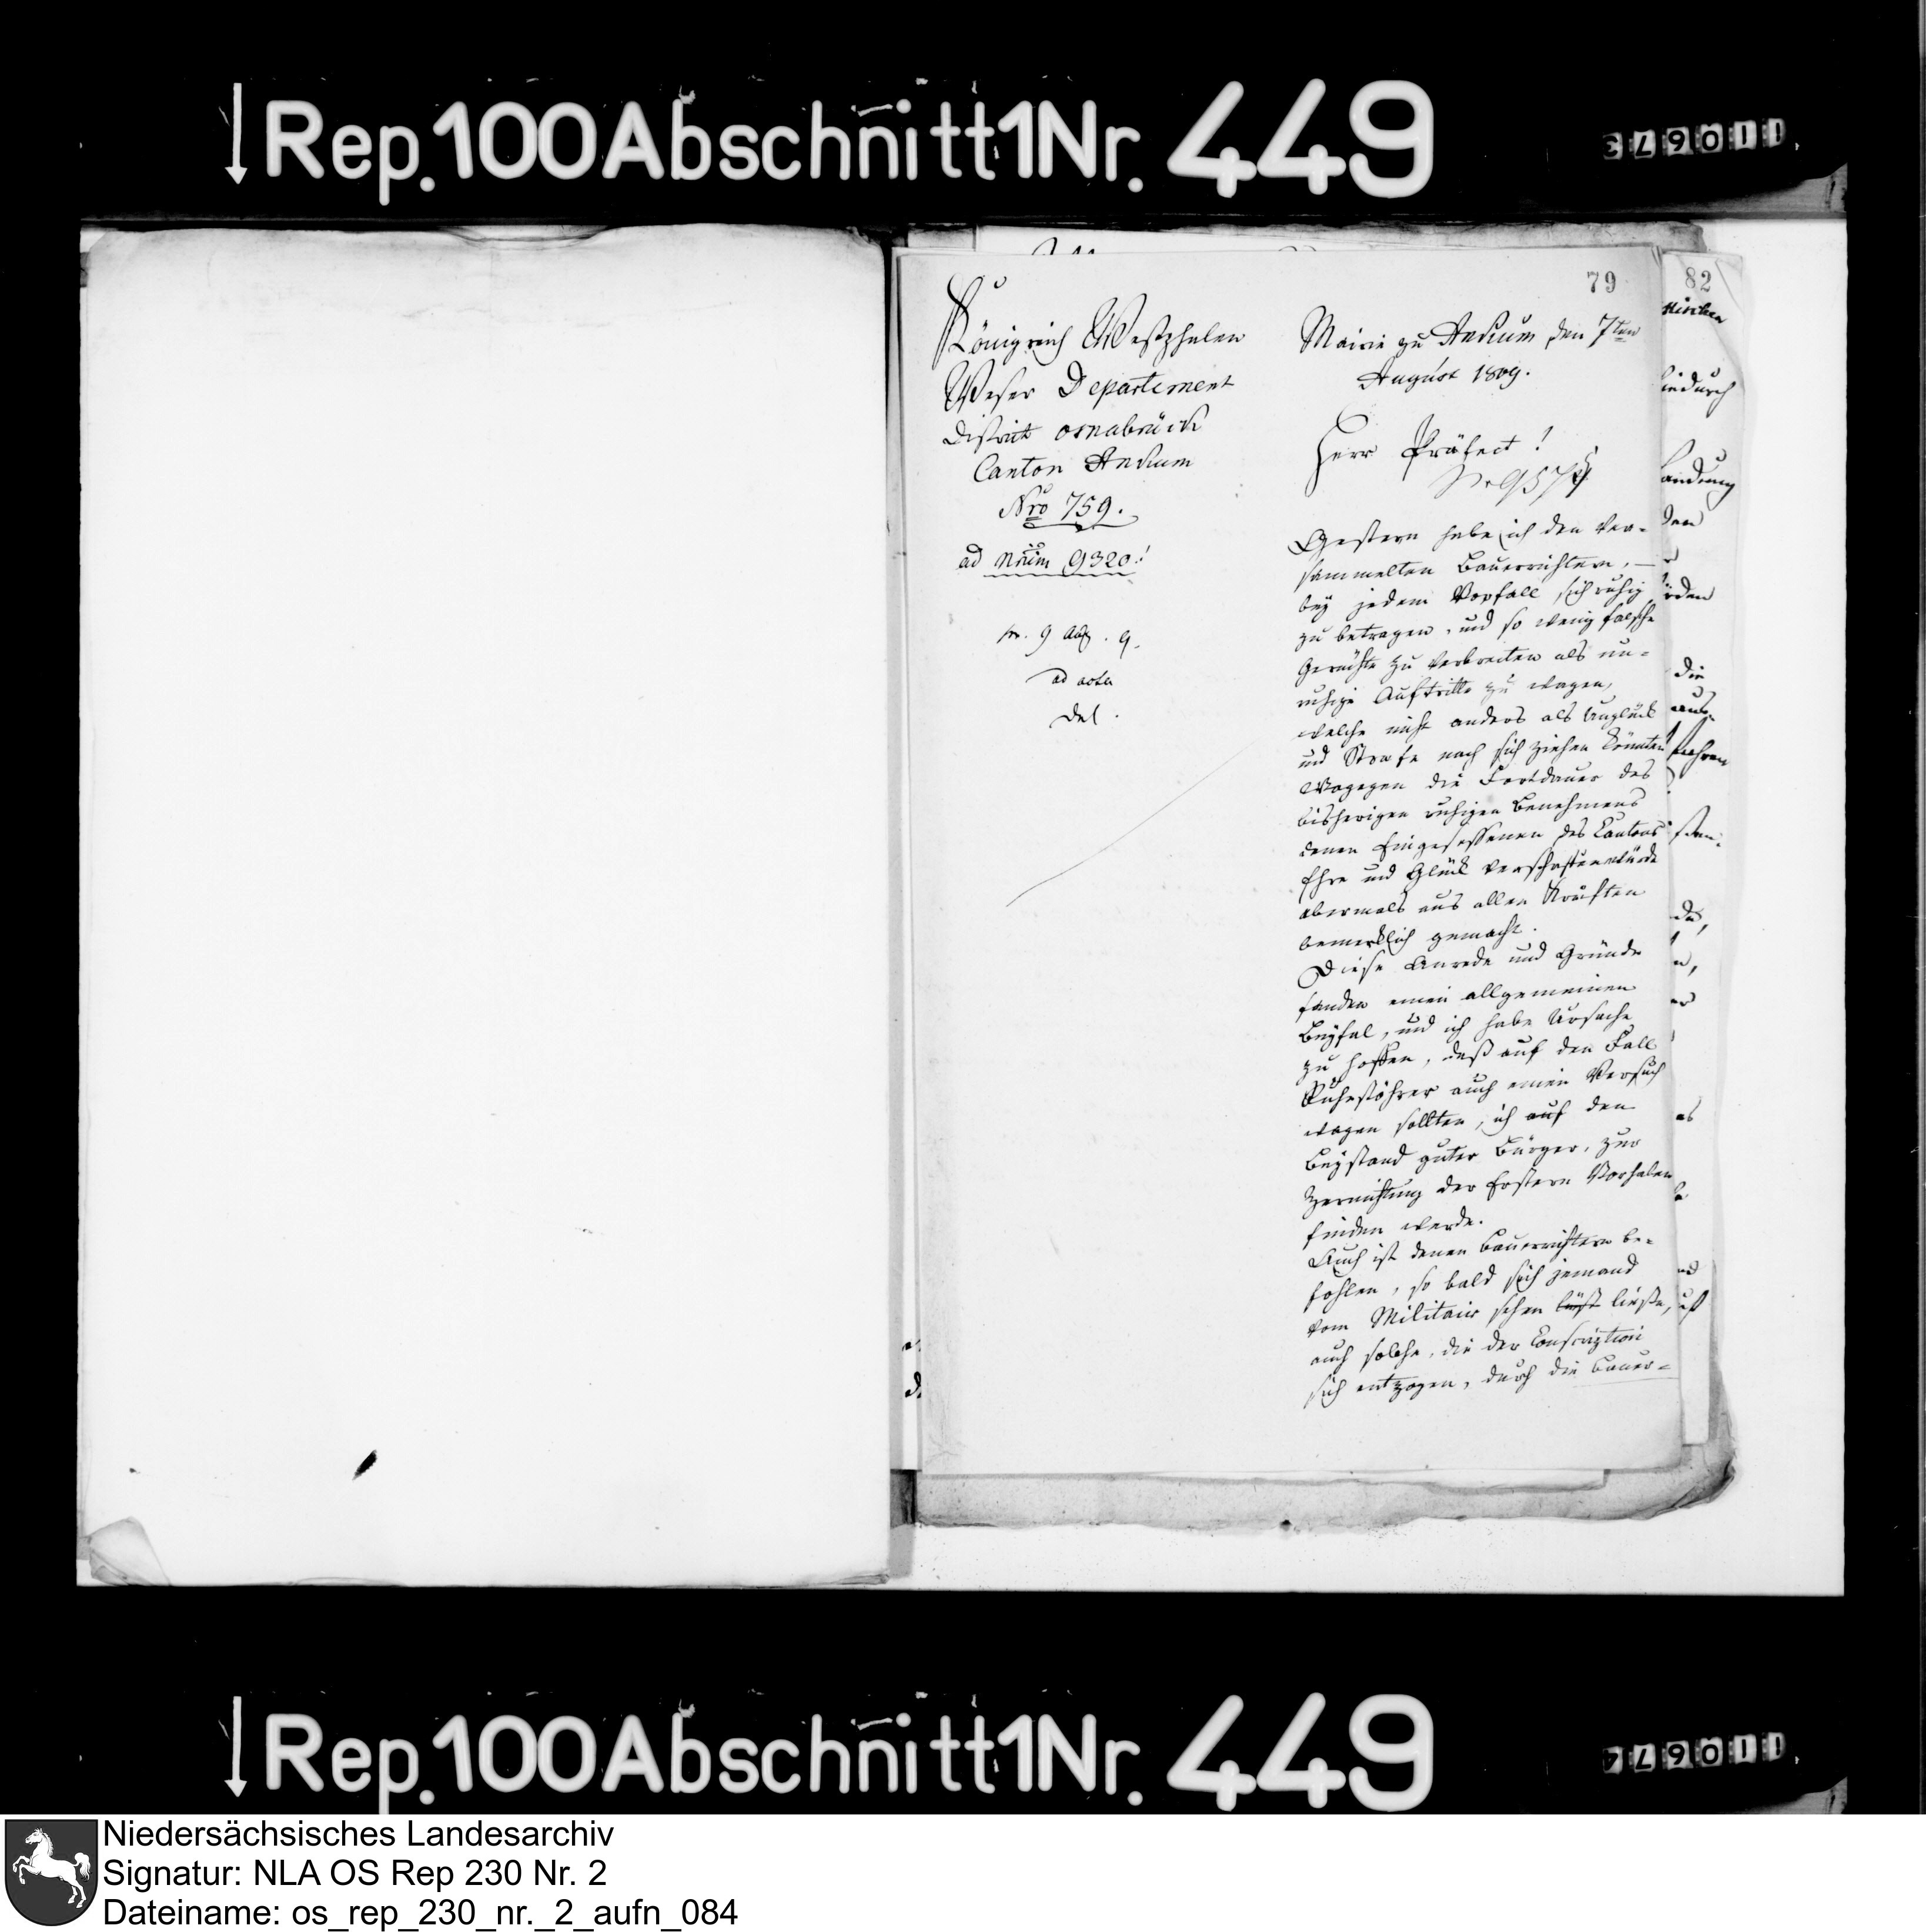 Rep. 100 Abschnitt 1 Nr. 449
110673
79
Königreich Westphalen
Weser Departement
District Osnabrück
Canton Ankum
Nro 759.
ad Nrum 9320!
pr. 9 Aug. 9.
ad acta
Mairie zu Ankum den 7ten
August 1809.
Herr Präfect!
Gestern habe ich den ver-
sammelten Bauerrichtern, —
bey jedem Vorfall sich ruhig
zu betragen, und so wenig falsche
Gerüchte zu verbreiten als un-
ruhige Auftritte zu wagen,
welche nicht anders als Unglück
und Strafe nach sich ziehen könnten
Wogegen die Fortdauer des
bisherigen ruhigen Benehmens
denen Eingesessenen des Cantons
Ehre und Glück verschaffen würde
abermals aus allen Kräften
bemerklich gemacht.
Diese Anrede und Gründe
fanden einen allgemeinen
Beyfal, und ich habe Ursache
zu hoffen, daß auf den Fall
Ruhestöhrer auch einen Versuch
wagen sollten, ich auf den
Beystand guter Bürger, zur
Zernichtung der Erstern Vorhaben
finden werde.
Auch ist denen Bauerrichtern be-
fohlen, so bald sich jemand
vom Militair sehen läst ließe,
auch solche, die der Conscription
sich entzogen, durch die Bauer-
82
Rep. 100 Abschnitt 1 Nr. 449
110674
Niedersächsisches Landesarchiv
Signatur: NLA OS Rep 230 Nr. 2
Dateiname: os_rep_230_nr._2_aufn_084